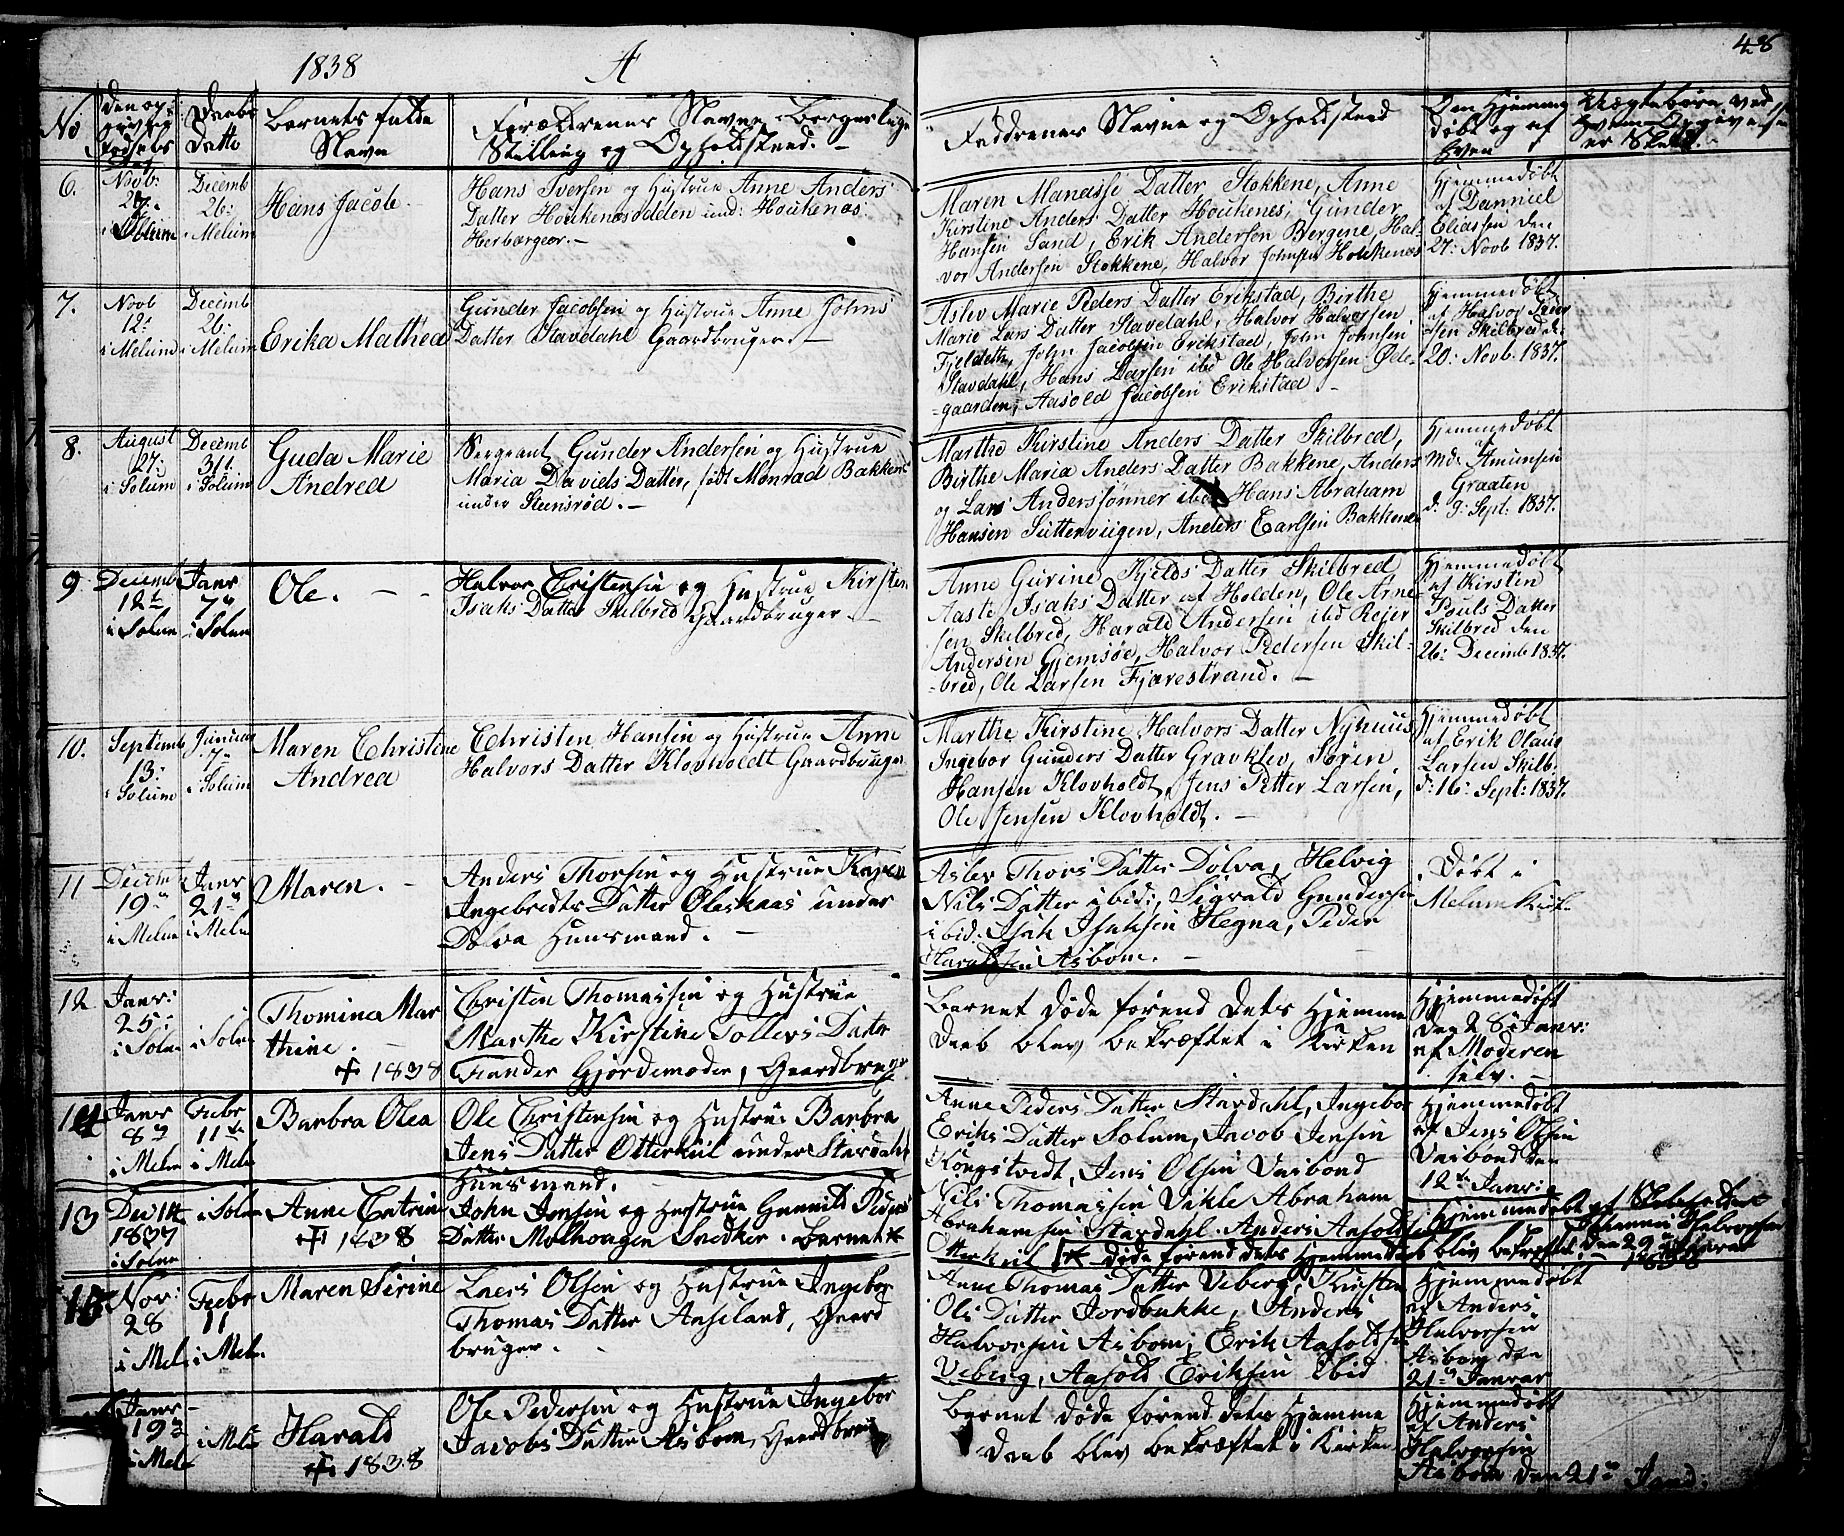 1838 A
48
No
Den op-
givne
Fødsels
Dag
Daabs
Datto
Barnets fulde
Navn
Forældrenes Navne Borgerlige
Stilling og Opholdsted. -
Faddrenes Navne og Opholdsted
Den Hjemme
døbt og af
hven
Uægtebörn ved
er Skeed.
6.
Novb:
27.
i Solum
Decemb
26:
i Melum
Hans Jacob.
Hans Iversen og Hustrue Anne Anders
Datter Houkenæsodden und: Houkenæs
Herbærgeer. -
Maren Manasse Datter Stokkene, Anne
Kirstine Anders Datter Houkenes, Gunder
Hansen Sand, Erik Andersen Bergene, Hal-
vor Andersen Stokkene, Halvor Johnsen Houkenæs
Hjemmedøbt
af Danniel
Eliassen den
27: Novb 1837.
7.
Novb
12:
i Melum
Decemb
26:
i Melum
Erika Mathea
Gunder Jacobsen og Hustrue Anne Johns
Datter Stavdahl Gaardbruger. -
Aslev Marie Peders Datter Erikstad, Birthe
Marie Lars Datter Stavdahl, Halvor Halvorsen
Fjeldeth, John Jacobsen Erikstad, John Johnsen
Stavdahl, Hans Larsen ibid Ole Halvorsen Øde-
-gaarden, Aasold Jacobsen Erikstad. -
Hjemmedøbt
af Halvor Peer
sen Skilbred d.
20: Novb. 1837.
8.
August
27:
i Solum
Decemb
31t.
i Solum
Guda Marie
Andrea
Sergeant Gunder Andersen og Hustrue
Maria Davids Datter, født Monrad Bakkene
under Steensrød. -
Marthe Kirstine Anders Datter Skilbred,
Birthe Maria Anders Datter Bakkene, Anders
og Lars Anderssønner ibid Hans Abraham
Hansen Suttervüigen, Anders Carlsen Bakkene
Hjemmedøbt
af
Md: Amunsen
Graaten
d. 9: Sept: 1837.
9
Decemb
12t
i Solum
Janr
7de
i Solum
Ole. - -
Halvor Christensen og Hustrue Kirsten
Isaks Datter Skilbred Gaardbruger. -
Anne Gurine Kjelds Datter Skilbred
Aaste Isaks Datter af Holden, Ole Arne-
sen Skilbred, Harald Andersen ibid Reier
Andersen Gjemsøe, Halvor Pedersen Skil-
-bred, Ole Larsen Fjærestrand. -
Hjemmedøbt
af Kirsten
Pouls Datter
Skilbred den
26: Decemb 1837.
10.
Septemb
13:
i Solum
Januar
7de
i Solum
Maren Christine
Andrea
Christen Hansen og Hustrue Anne
Halvors Datter Klovholdt Gaardbruger
Marthe Kirstine Halvors Datter Nyhuus
Ingebor Gunders Datter Gravklev, Søren
Hansen Klovholdt, Jens Petter Larsen,
Ole Jensen Klovholdt. -
Hjemmedøbt
af Erik Olaus
Larsen Skilb.
d: 16: Sept: 1837.
11
Decem
19
i Melum
Janr
21
i Melu
Maren. -
Anders Thorsen og Hustrue Karen
Ingebredts Datter Oleskaas under
Dølva Huusmand. -
Aslev Thors Datter Dølva, Helvig
Nils Datter ibid:, Sigvald Gundersen
ibid: Isak Isaksen Hegna, Peder
Haraldsen Asbom. -
Døbt i
Melum Kirk
12
Janr:
25
i Solu
i Solu
Thomina Mar
thine. -
+ 1838
Christen Thomassen og Hustrue
Marthe Kirstine Sollers Datter
Fiander Gjordemoder, Gaardbruger
Barnet døde førend dets Hjemme
Daab blev bekræftet i Kirken
Hjemmedøbt
den 28 Janr:
af Moderen
selv. -
14
Janr
8de
i Melu
Febr
11te
i Melu
Barbra Olea
Ole Christensen og Hustrue Barbra
Jens Datter Otterkiil under Stavdahl
Huusmand.
Anne Peders Datter Stavdahl, Ingebor
Eriks Datter Solum, Jacob Jensen
Kongstvedt, Jens Olsen Vaibond
Nils Thomassen Vikle Abraham
Abrahamsen Stavdahl. Anders Aasoldsen
Otterkiil
Hjemmedøbt
af Jens Olsen
Vaibond den
12te Janr:
13
Dec 14
1837
i Solum
i Solum
Anne Catrine
+ 1838
John Jensen og Hustrue Gunnild Peders
Datter Molhougen Snedker. Barnet *
* døde førend dets Hjemmedaab blev bekræftet
Hjemmedøbt af
Johannes Halvorsen
den 29 Januar
1838
15
Nov:
28
i Melu
Febr
11
i Melu.
Maren Serine
Laers Olsen og Hustrue Ingebor
Thomas Datter Aaseland, Gaard
bruger. -
Anne Thomas Datter Veberg, Kirsten
Ols Datter Jordbakke, Anders
Halvorsen Asbom, Erik Aasoldsen
Veberg, Aasold Eriksen Ibid
Hjemmedøbt
af Anders
Halvorsen
Asborg den
21 Januar
Janr
19
i Melu
i Melu
Harald
+ 1838
Ole Pedersen og Hustrue Ingebor
Jacobs Datter Asbom, Gaardbrug
Barnet døde førend dets Hjemme
Daab blev bekræftet i Kirken
Hjemmedøbt
af Anders
Halvorsen
Asbom den 21 Janr: